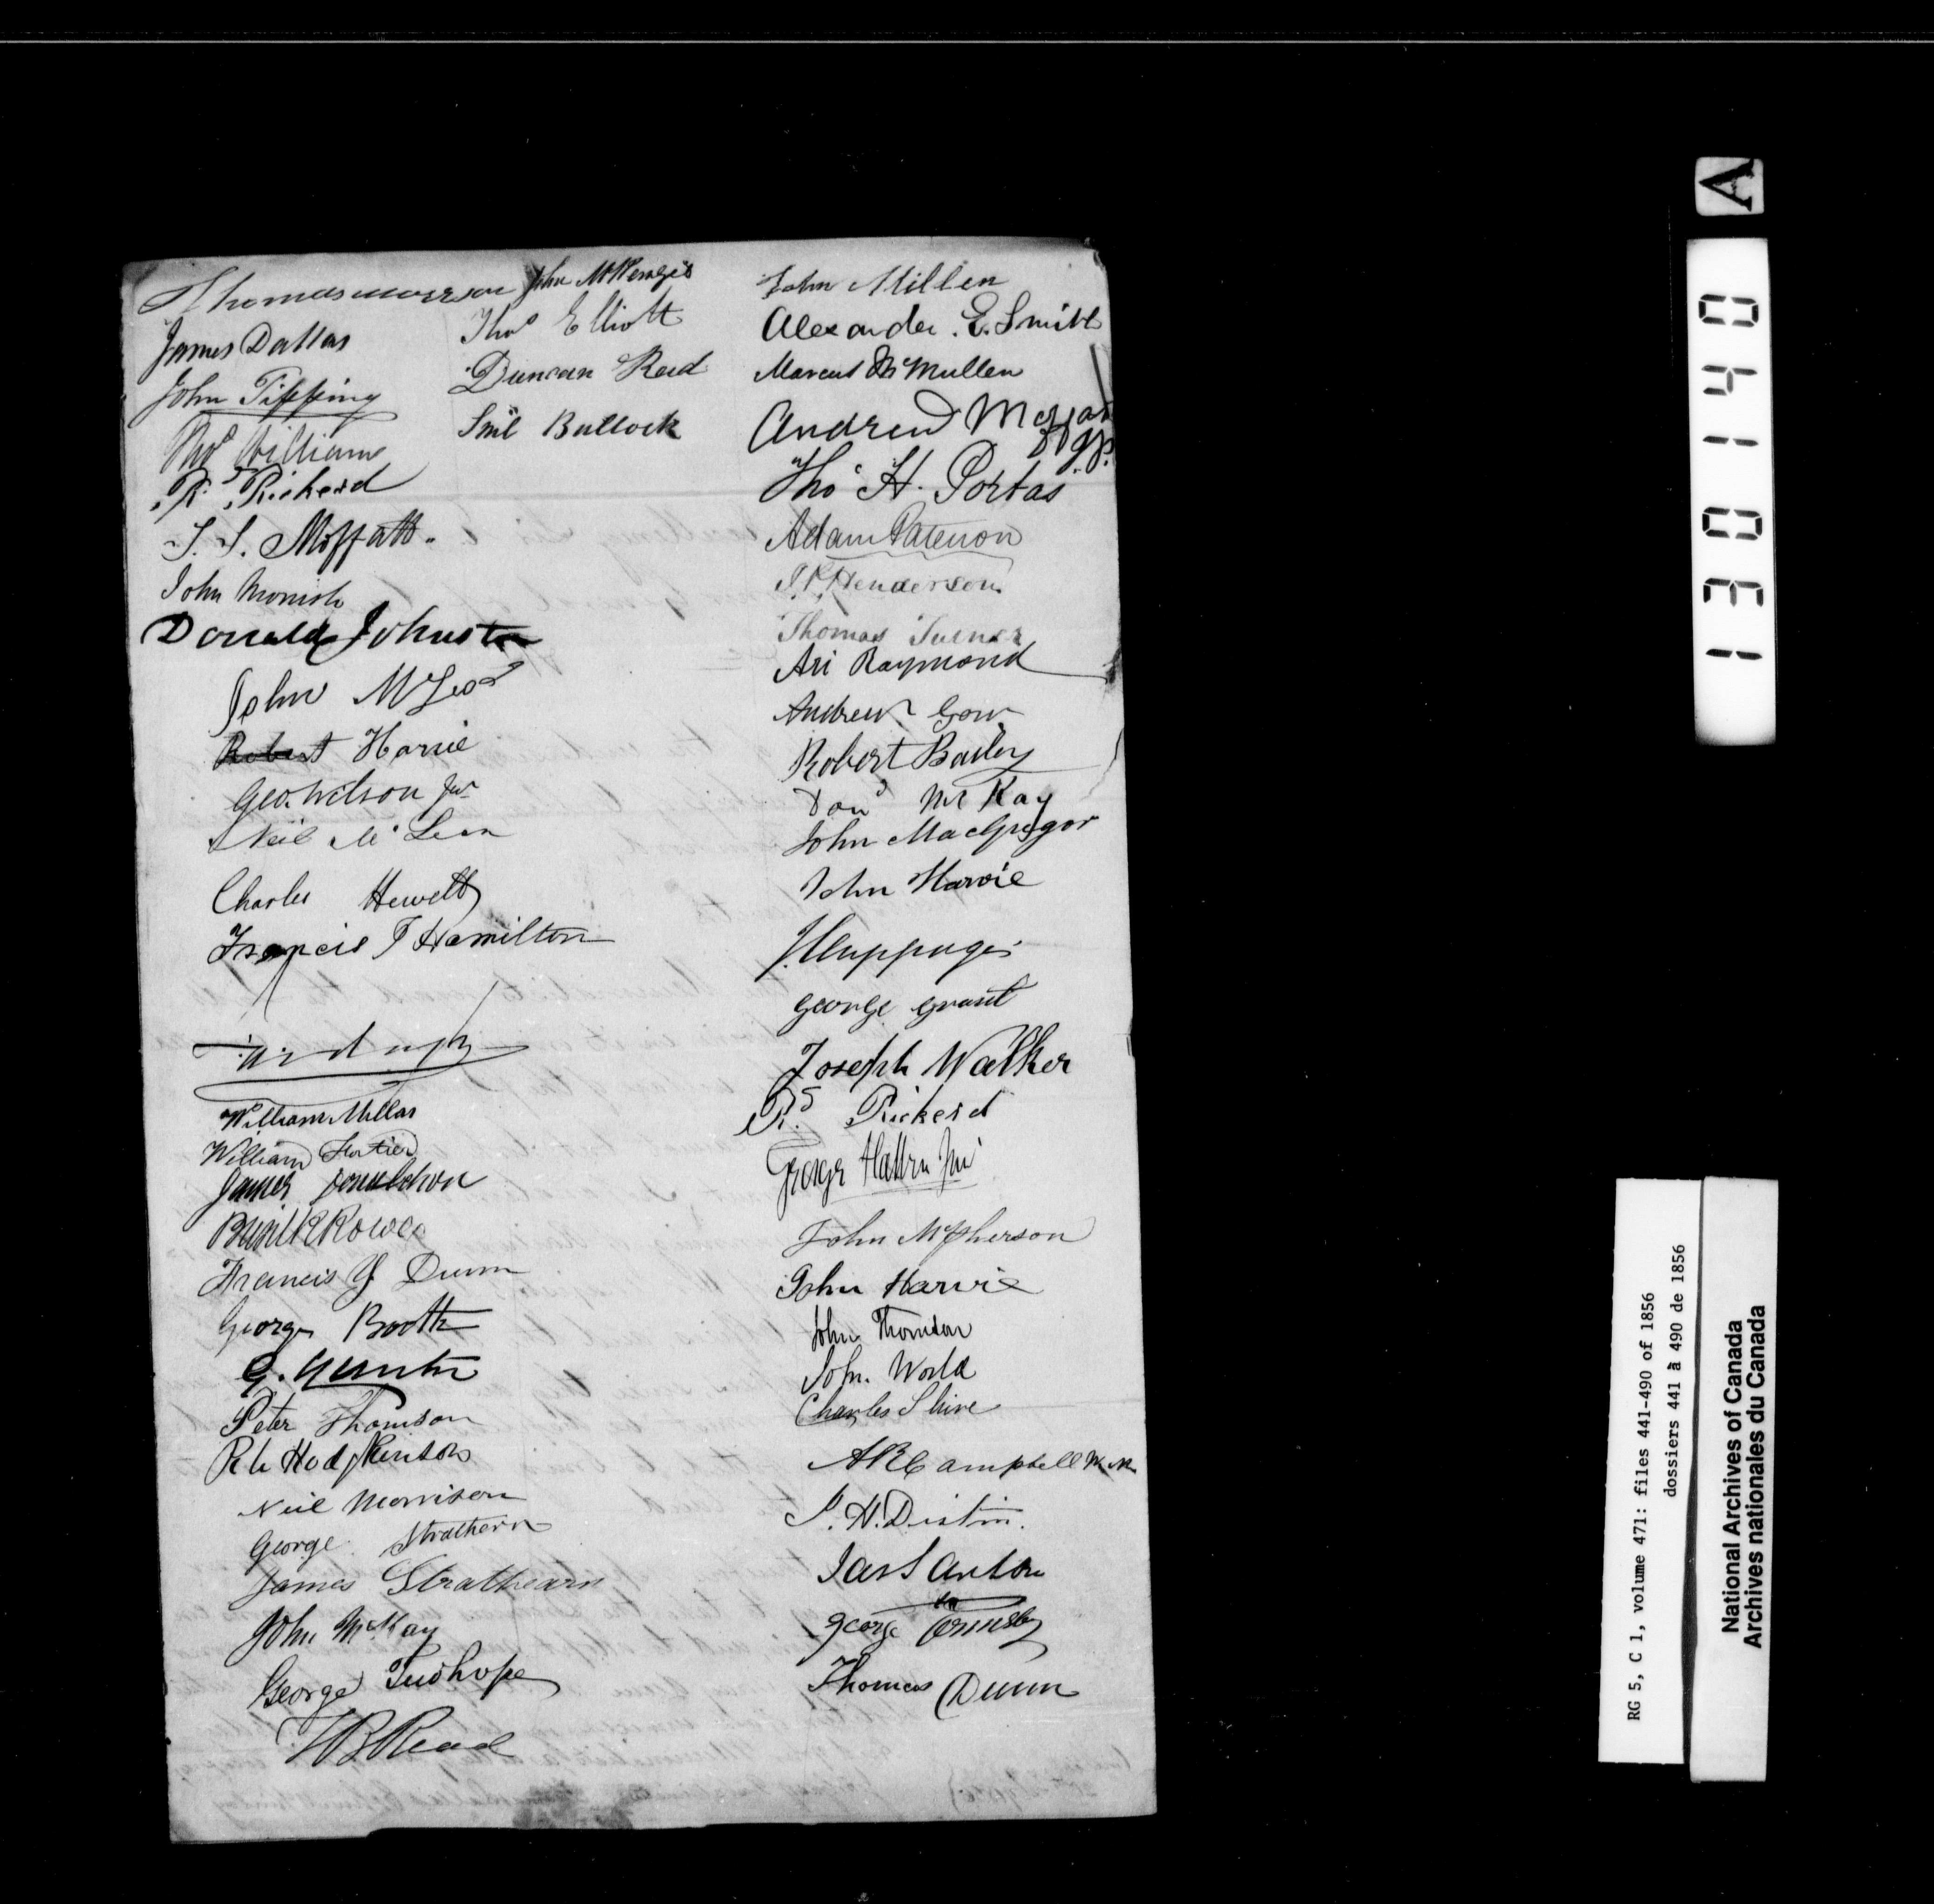 Thomas
John McKenzie
James Dallas
Thos Elliott
John Tipping
Duncan Reid
Thos Williams
Saml Bullock
Rs Rickerd
J. S. Moffatt.
John Monish
Donald Johnston
John McLeod
Robert Harvie
Geo. Wilson Jur
Neil Mc Lean
Charles Hewett
Francis T Hamilton
William Millar
William
James Donaldson
Basil R Rowe
Francis Y Dunn
George Booth
G.
Peter Thomson
Hodgkinson
Neil Morrison
George Strathern
James Strathearn
John McKay
George Tudhope
Read
John Millen
Alexander. E. Smith
Marcus McMullen
Andrew
J.P.
Tho H. Portas
Adam Paterson
Henderson
Thomas Turner
Ari Raymond
Andrew Gow
Robert Bailey
Dond McKay
John MacGregor
John Harvie
George Grant
Joseph Walker
Rs Rickerd
George Hallen Jur
John McPherson
John Harvie
John Thomson
John World
Charles
A R Campbell
J. H. Distin.
Jas Santon
George Ormsby
Thomas Dunn
A
130140
RG 5, C 1, volume 471: files 441-490 of 1856
dossiers 441 à 490 de 1856
National Archives of Canada
Archives nationales du Canada